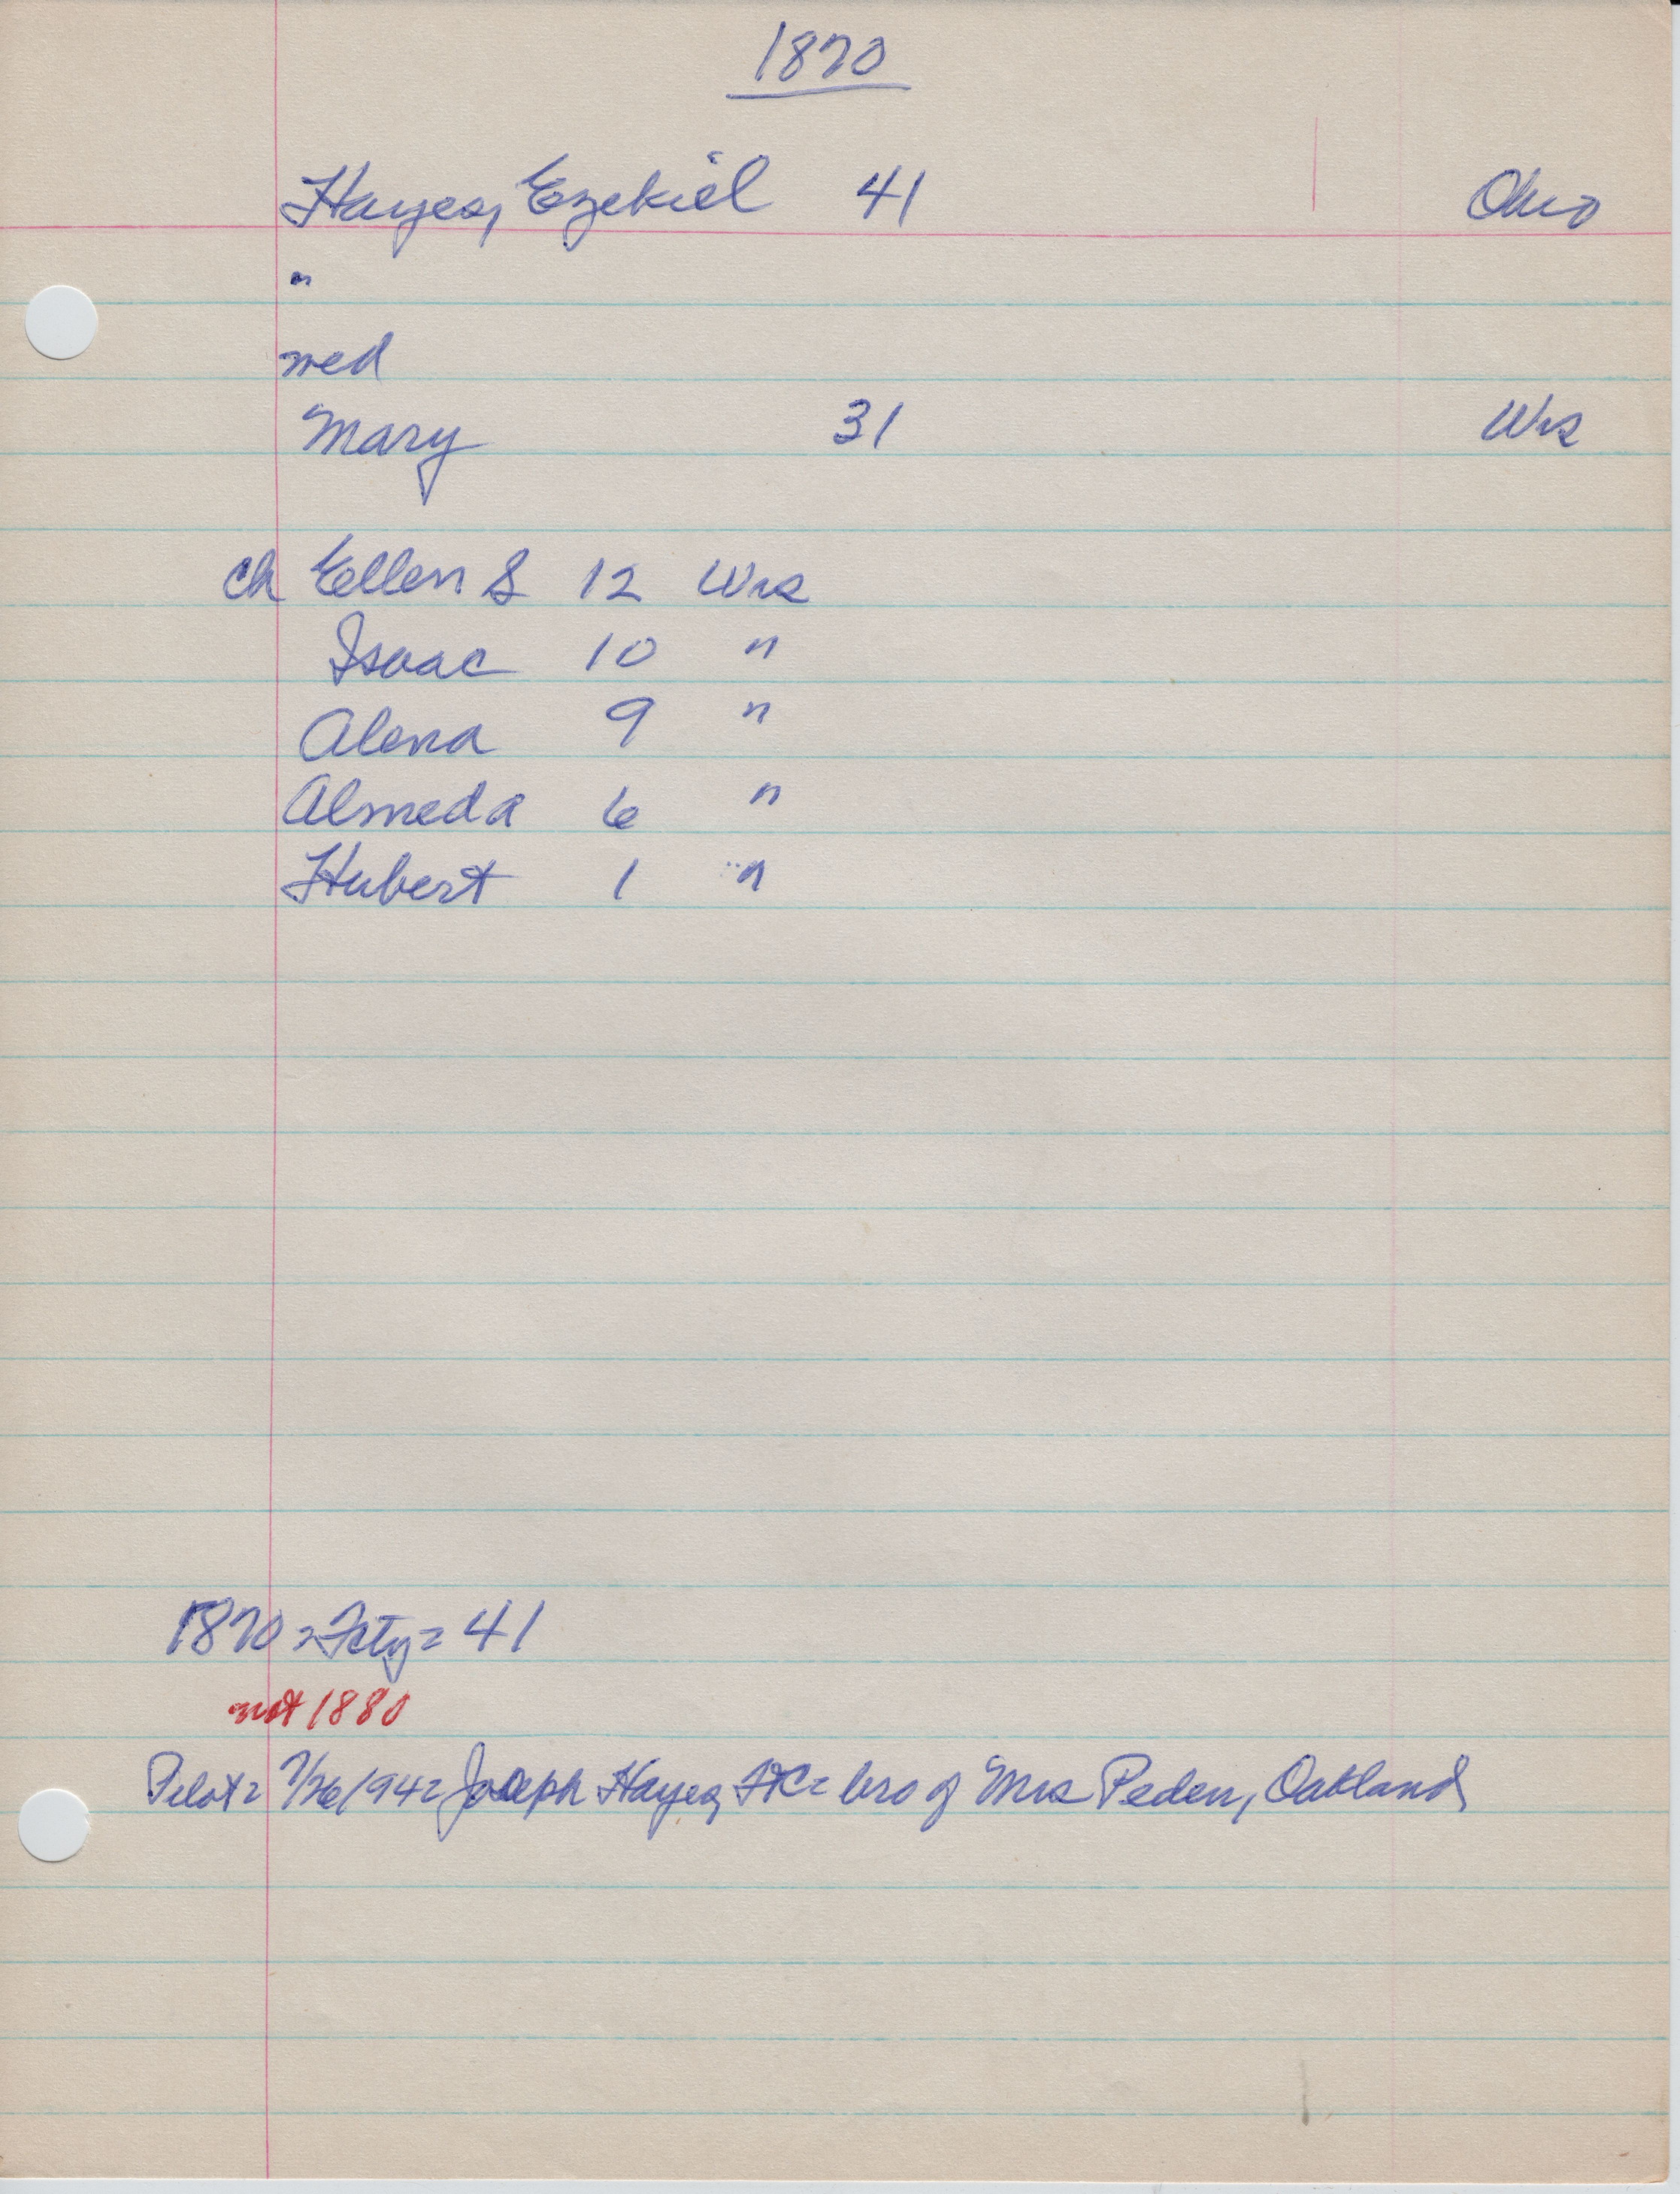 1870
Hayes, Ezekiel 41 Ohio
"
med
Mary 31 Wis
ch Ellen S 12 Wis
Isaac 10 "
Alena 9 "
Almeda 6 "
Hubert 1 "
1870 = Fcty = 41
not 1880
Pilot = 7/26/94 = Joseph Hayes, = bro of Mrs Peden, Oakland